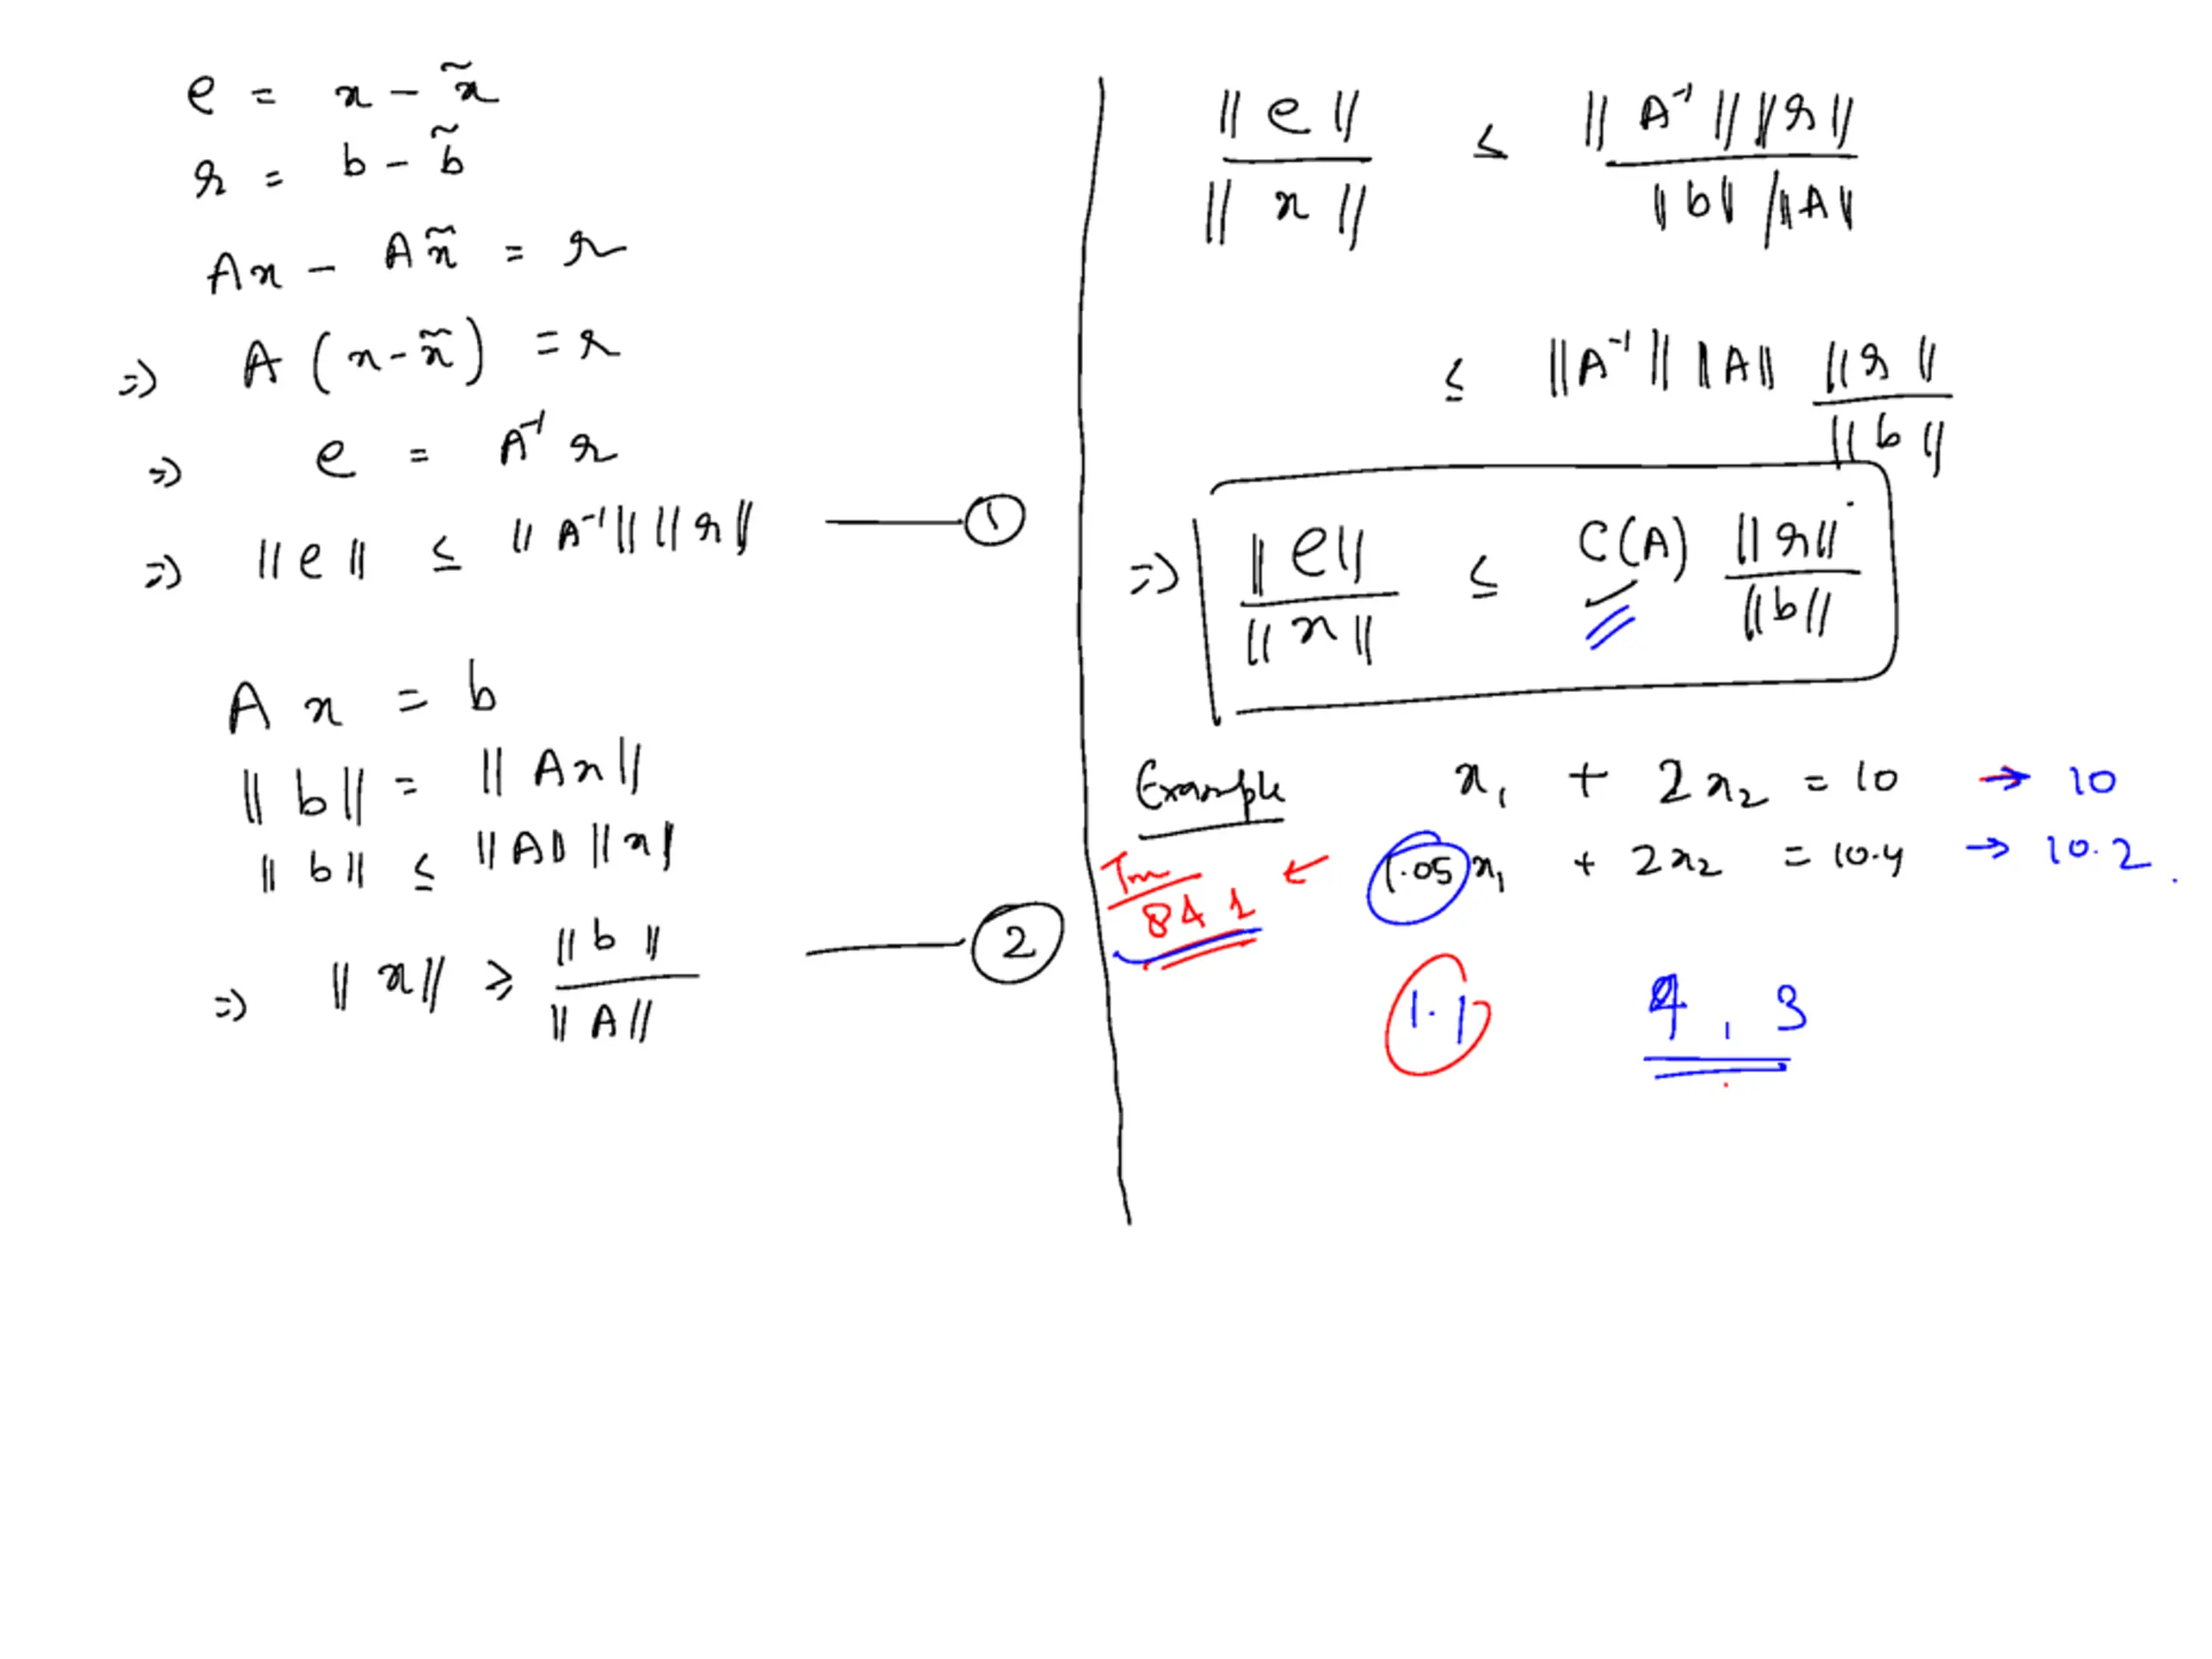 e = x - x̃
r = b - b̃
Ax - Ax̃ = r
⇒ A(x - x̃) = r
⇒ e = A⁻¹ r
⇒ ||e|| ≤ ||A⁻¹|| ||r|| —— ①
Ax = b
||b|| = ||Ax||
||b|| ≤ ||A|| ||x||
⇒ ||x|| ≥ ||b|| / ||A|| —— ②
||e|| / ||x|| ≤ ||A⁻¹|| ||r|| / ||b|| / ||A||
≤ ||A⁻¹|| ||A|| ||r|| / ||b||
⇒ ||e|| / ||x|| ≤ C(A) ||r|| / ||b||
Example x₁ + 2x₂ = 10 → 10
← 1.05 x₁ + 2x₂ = 10.4 → 10.2
8 & 1
1.1 4, 3